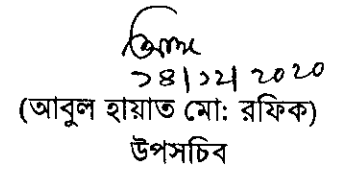 ১৪|১২|২০২০
(আবুল হায়াত মো: রফিক)
উপসচিব